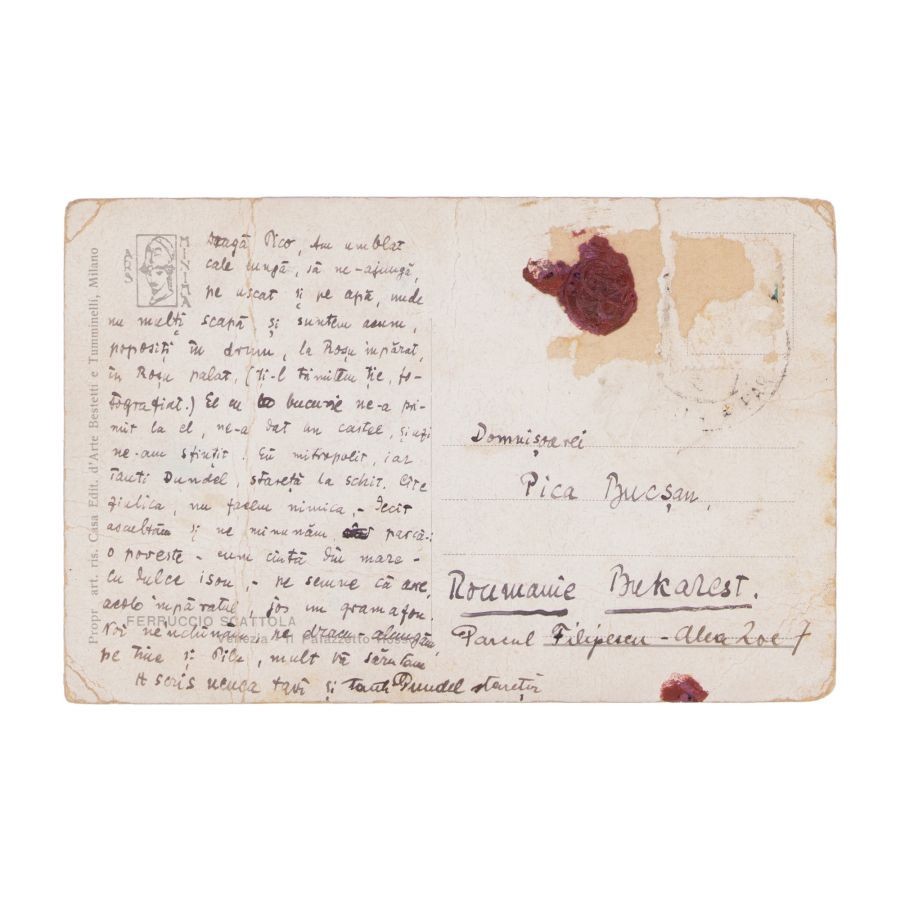 ARS
MINIMA
Propr art. ris. Casa Edit. d'Arte Bestetti e Tumminelli, Milano
Dragă Pico, Am umblat
cale lungă, să ne-ajungă,
pe uscat și pe apă, unde
nu mulți scapă și suntem acum,
popositi în drum, la Roșu împărat,
în Roșu palat, (ți-l trimitem ție, fo-
tografiat.) El cu bucurie ne-a pri-
mit la el, ne-a dat un castel, și azi
ne-am sfințit. Eu mitropolit, iar
Tanti Dundel, stareță la schit. Cât e
ziulica, nu facem nimica, - Decit
ascultăm și ne minunăm, parcă-i
o poveste - cum cântă din mare -
cu dulce ison, - pe semne că are,
acolo împăratul, jos un gramafon.
Noi ne-nchinăm, pe dracu alungăm,
pe tine și Pilu, mult vă sărutăm
A scris nenea Tavi și tanti Dundel stareța
FERRUCCIO SCATTOLA
Venezia - Il Palazzetto Rosso
Domnișoarei
Pica Bucșan
Roumanie Bukarest.
Parcul Filipescu - Alea Zoe 7